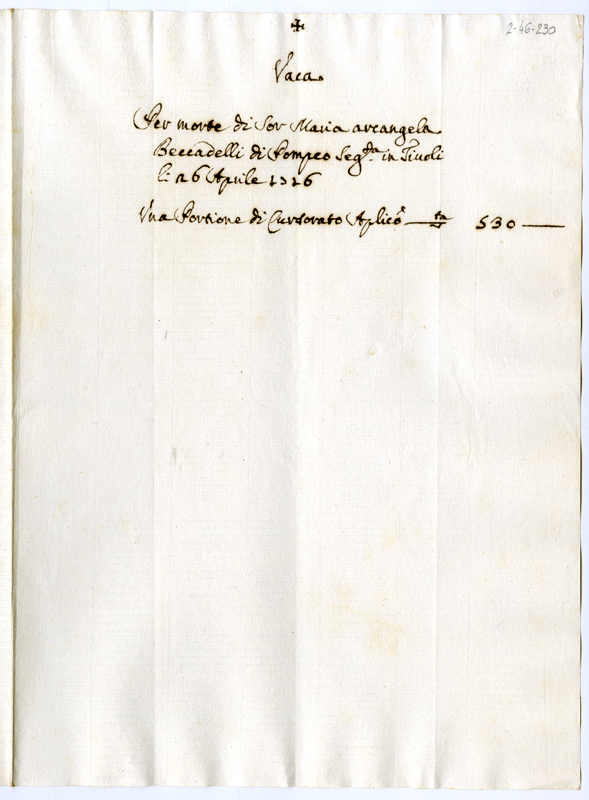 2-46-230
✠
Vaca.
Per morte di Sor Maria arcangela
Beccadelli di Pompeo Seg.ta in Tivoli
li 26 Aprile 1716
Una Portione di Cursorato Aplico 530